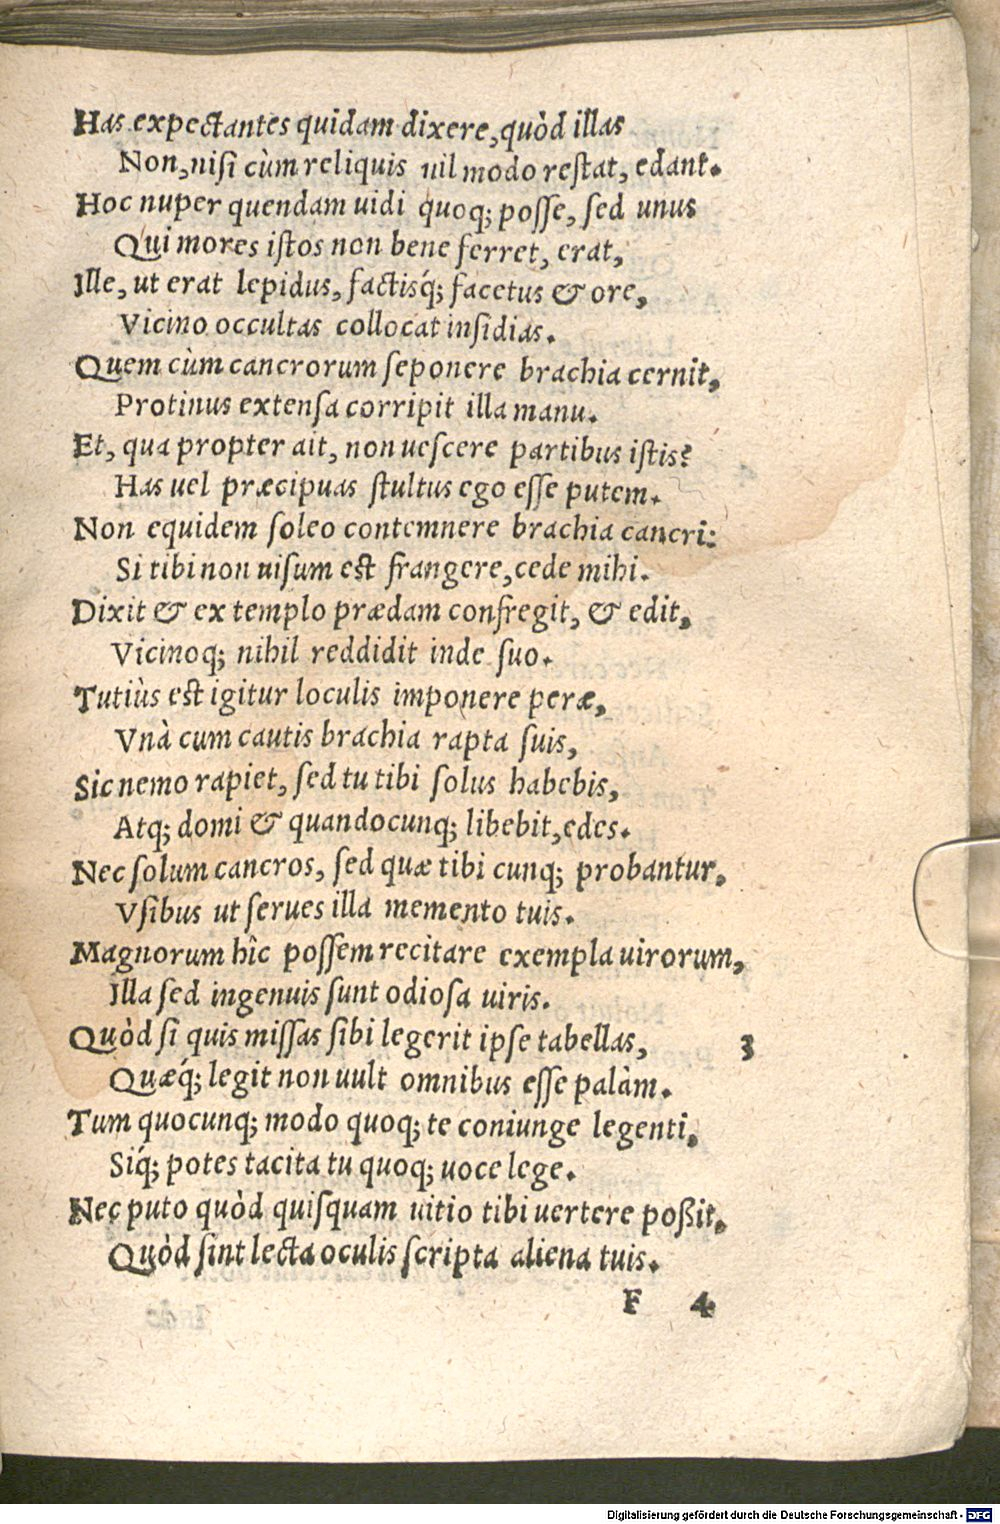 Has expectantes quidam dixere, quòd illas
Non, nisi cùm reliquis nil modo restat, edant.
Hoc nuper quendam uidi quoq; posse, sed unus
Qui mores istos non bene ferret, erat,
Ille, ut erat lepidus, factisq́; facetus & ore,
Vicino occultas collocat insidias.
Quem cùm cancrorum seponere brachia cernit,
Protinus extensa corripit illa manu.
Et, qua propter ait, non uescere partibus istis?
Has uel præcipuas stultus ego esse putem.
Non equidem soleo contemnere brachia cancri:
Si tibi non uisum est frangere, cede mihi.
Dixit & ex templo prædam confregit, & edit,
Vicinoq; nihil reddidit inde suo.
Tutiùs est igitur loculis imponere peræ,
Vnà cum cautis brachia rapta suis,
Sic nemo rapiet, sed tu tibi solus habebis,
Atq; domi & quandocunq; libebit, edes.
Nec solum cancros, sed quæ tibi cunq; probantur,
Vsibus ut serues illa memento tuis.
Magnorum hîc possem recitare exempla uirorum,
Illa sed ingenuis sunt odiosa uiris.
Quòd si quis missas sibi legerit ipse tabellas, 3
Quæq́; legit non uult omnibus esse palàm.
Tum quocunq; modo quoq; te coniunge legenti,
Siq́; potes tacita tu quoq; uoce lege.
Nec puto quòd quisquam uitio tibi uertere poßit,
Quòd sint lecta oculis scripta aliena tuis.
F 4
Digitalisierung gefördert durch die Deutsche Forschungsgemeinschaft - DFG